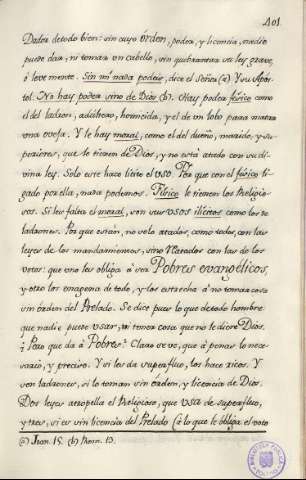 401
Dador de todo bien: sin cuyo orden, poder, y licencia, nadie
puede dar, ni tomar un cabello, sin quebrantar su ley grave,
ó levemente. Sin mi nada podeis, dice el Señor (a) Y su Após-
tol: No hay poder sino de Dios (b). Hay poder físico como
el del ladron, adúltero, homicida, y el de un lobo para matar
una oveja. Y le hay moral, como el del dueño, marido, y su-
periores, que le tienen de Dios, y no está atado con su di-
vina ley. Solo este hace lícito el uso. Por que con el físico li-
gado por ella, nada podemos. Físico le tienen los Religio-
sos. Si les falta el moral, son sus usos ilícitos como los de
ladrones. Por que están, no solo atados, como todos, con las
leyes de los mandamientos, sino con las de los
votos: que uno les obliga á ser Pobres evangélicos,
y otro los enagena de todo, y los estrecha á no tomar cosa
sin órden del Prelado. Se dice pues lo que de todo hombre
que nadie puede usar, ni tener cosa que no le dió Dios.
¿Pero que da á Pobres? Claro se ve, que á penas lo nece-
sario, y preciso. Y si les da superfluo, los hace ricos. Y
son ladrones, si lo toman sin orden, y licencia de Dios.
Dos leyes atropella el Religioso, que usa de superfluo,
y tres, si es sin licencia del Prelado (á lo que le obliga el voto
(a) Joan. 15. (b) Rom. 13.